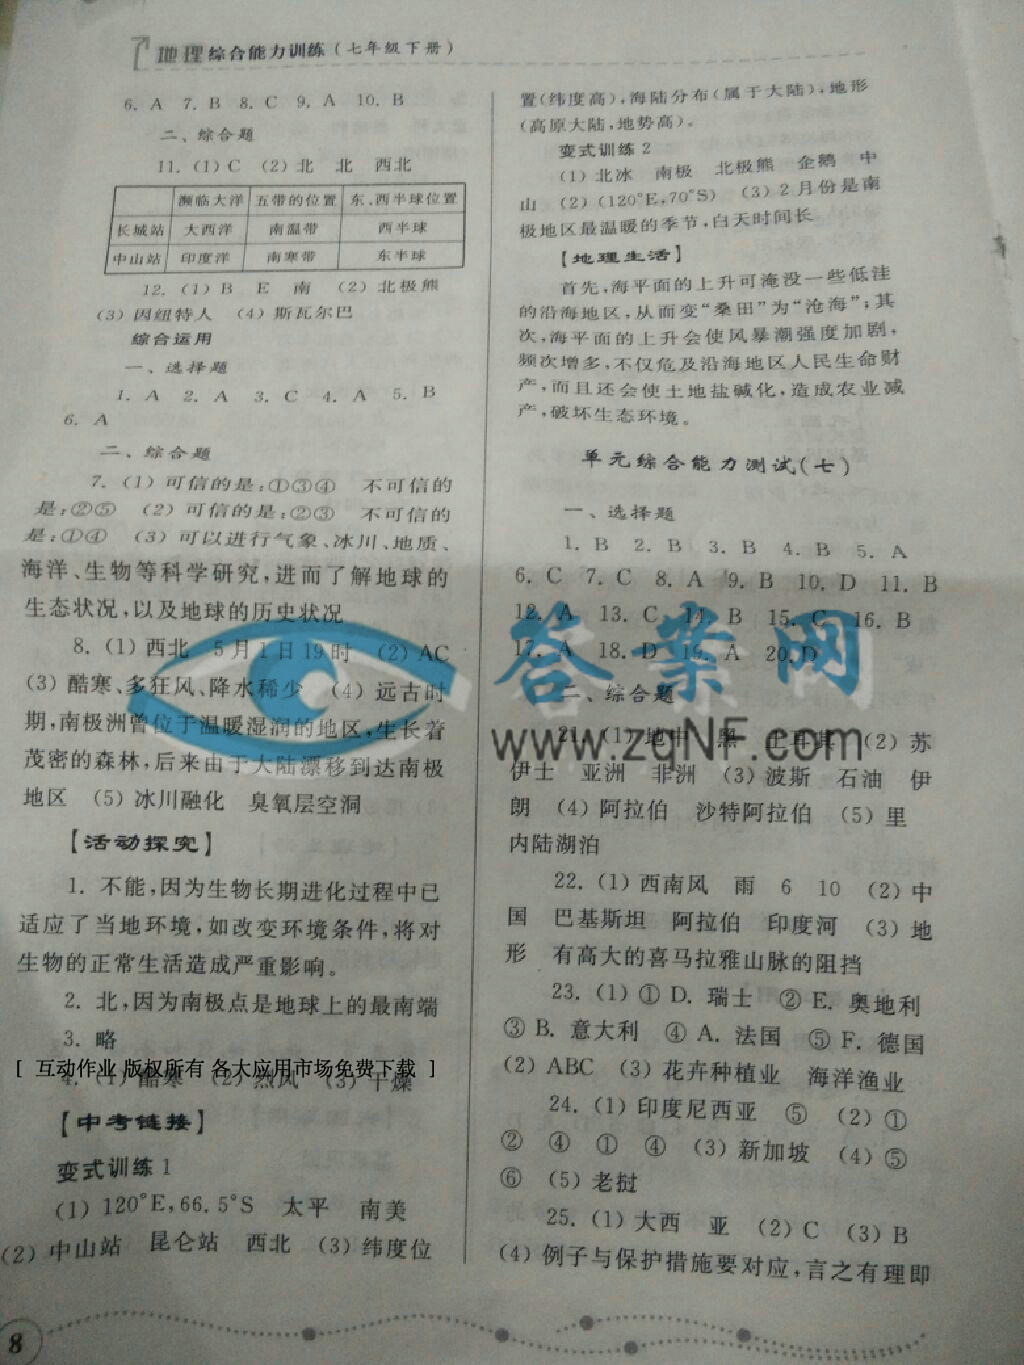 地理 综合能力训练(七年级下册)
6. A 7. B 8. C 9. A 10. B
二、综合题
11. (1) C (2) 北 北 西北
濒临大洋 五带的位置 东、西半球位置
长城站 大西洋 南温带 西半球
中山站 印度洋 南寒带 东半球
12. (1) B E 南 (2) 北极熊
(3) 因纽特人 (4) 斯瓦尔巴
综合运用
一、选择题
1. A 2. A 3. C 4. A 5. B
6. A
二、综合题
7. (1) 可信的是:①③④ 不可信的
是:②⑤ (2) 可信的是:②③ 不可信的
是:①④ (3) 可以进行气象、冰川、地质、
海洋、生物等科学研究,进而了解地球的
生态状况,以及地球的历史状况
8. (1) 西北 5月1日19时 (2) AC
(3) 酷寒、多狂风、降水稀少 (4) 远古时
期,南极洲曾位于温暖湿润的地区,生长着
茂密的森林,后来由于大陆漂移到达南极
地区 (5) 冰川融化 臭氧层空洞
【活动探究】
1. 不能,因为生物长期进化过程中已
适应了当地环境,如改变环境条件,将对
生物的正常生活造成严重影响。
2. 北,因为南极点是地球上的最南端
3. 略
[ 互动作业 版权所有 各大应用市场免费下载 ]
4. (1) 酷寒 (2) 烈风 (3) 干燥
【中考链接】
变式训练1
(1) 120°E,66.5°S 太平 南美
(2) 中山站 昆仑站 西北 (3) 纬度位
8
置(纬度高),海陆分布(属于大陆),地形
(高原大陆,地势高)。
变式训练2
(1) 北冰 南极 北极熊 企鹅 中
山 (2) (120°E,70°S) (3) 2月份是南
极地区最温暖的季节,白天时间长
【地理生活】
首先,海平面的上升可淹没一些低洼
的沿海地区,从而变“桑田”为“沧海”;其
次,海平面的上升会使风暴潮强度加剧,
频次增多,不仅危及沿海地区人民生命财
产,而且还会使土地盐碱化,造成农业减
产,破坏生态环境。
单元综合能力测试(七)
一、选择题
1. B 2. B 3. B 4. B 5. A
6. C 7. C 8. A 9. B 10. D 11. B
12. A 13. C 14. B 15. C 16. B
17. A 18. D 19. A 20. D
答案网
www.zqNF.com
二、综合题
21. (1) 地中 黑 土耳其 (2) 苏
伊士 亚洲 非洲 (3) 波斯 石油 伊
朗 (4) 阿拉伯 沙特阿拉伯 (5) 里
内陆湖泊
22. (1) 西南风 雨 6 10 (2) 中
国 巴基斯坦 阿拉伯 印度河 (3) 地
形 有高大的喜马拉雅山脉的阻挡
23. (1) ① D. 瑞士 ② E. 奥地利
③ B. 意大利 ④ A. 法国 ⑤ F. 德国
(2) ABC (3) 花卉种植业 海洋渔业
24. (1) 印度尼西亚 ⑤ (2) ①
② ④ ① ④ (3) 新加坡 (4) ⑤
⑥ (5) 老挝
25. (1) 大西 亚 (2) C (3) B
(4) 例子与保护措施要对应,言之有理即